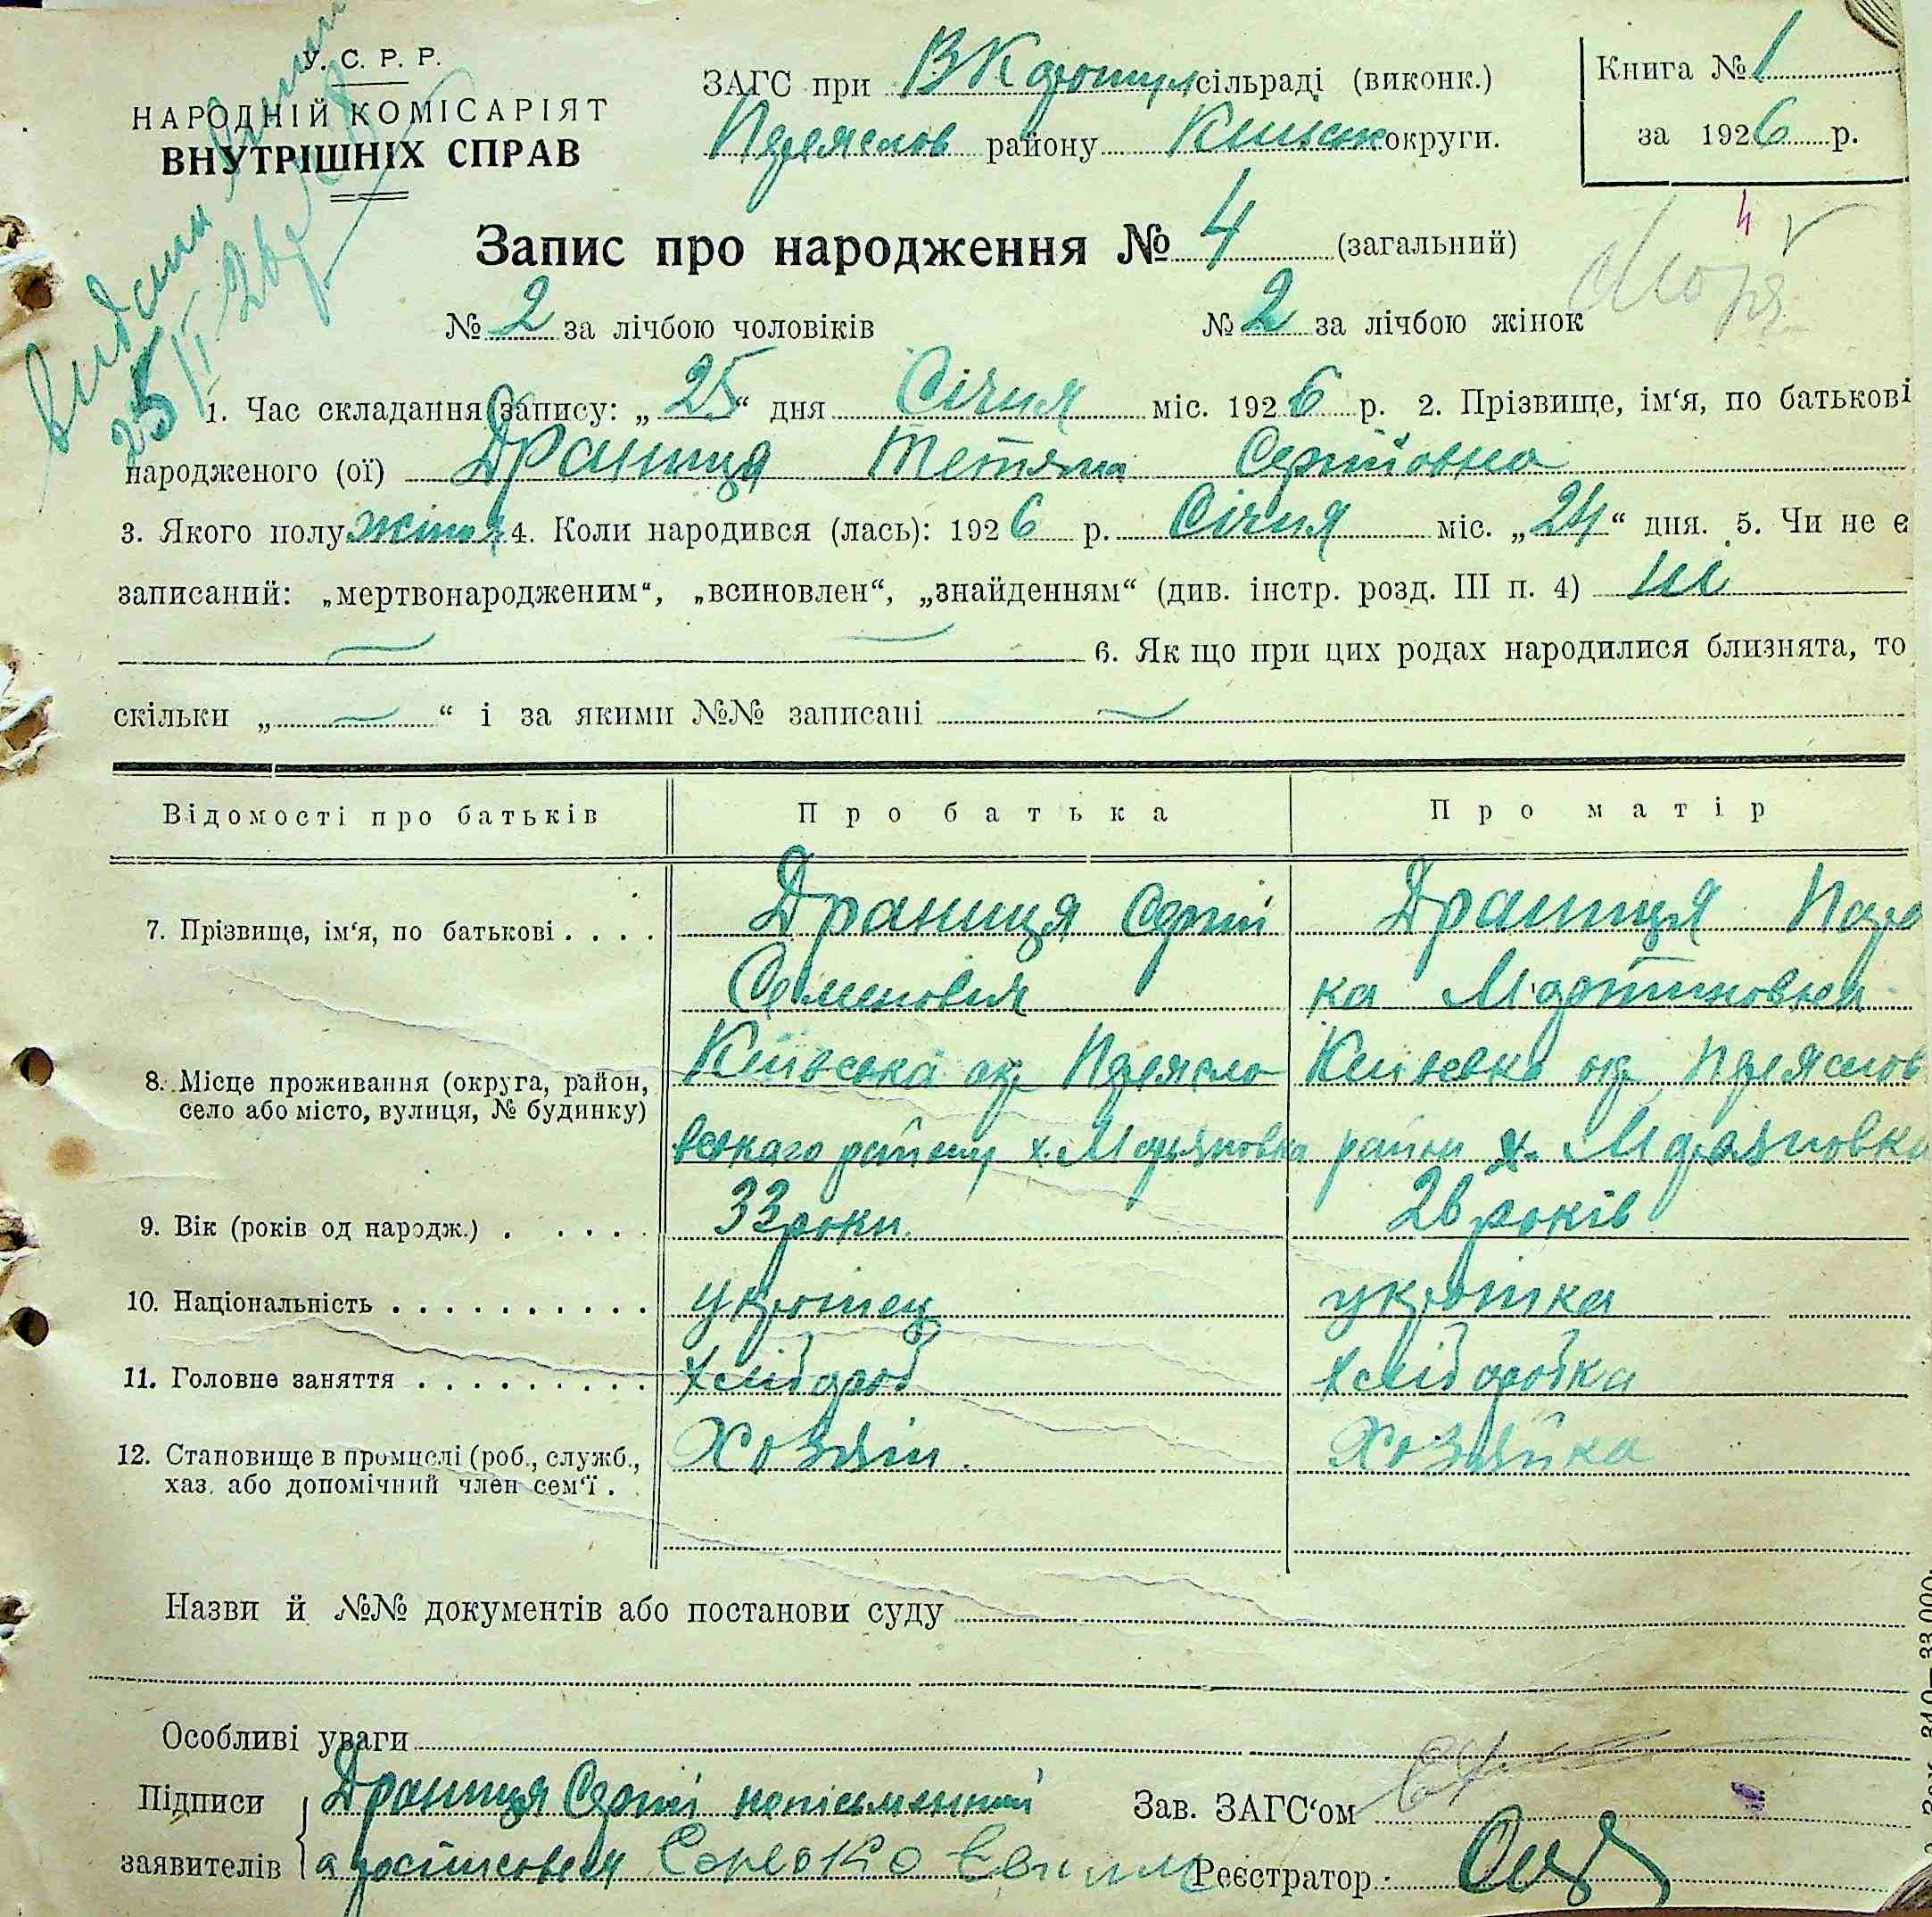 У. С. Р. Р.
НАРОДНІЙ КОМІСАРІЯТ
ВНУТРІШНІХ СПРАВ
ЗАГС при В Каратул сільраді (виконк.)
Переяслов району Київськ округи.
Книга № 1
за 1926 р.
4
Запис про народження № 4 (загальний)
№ 2 за лічбою чоловіків № 2 за лічбою жінок
1. Час складання запису: „25“ дня Січня міс. 1926 р. 2. Прізвище, ім‘я, по батькові
народженого (ої) Драниця Тетяна Сергіївна
3. Якого полу жіноч 4. Коли народився (лась): 1926 р. Січня міс. „24“ дня. 5. Чи не є
записаний: „мертвонародженим“, „всиновлен“, „знайденням“ (див. інстр. розд. III п. 4) ні
6. Як що при цих родах народилися близнята, то
скільки „ “ і за якими №№ записані
Відомості про батьків Про батька Про матір
7. Прізвище, ім‘я, по батькові . . . . Драниця Сергій Драниця Пара
Семенович ка Мартиновна
8. Місце проживання (округа, район, Київська окр Переясло Київська окр Переяслов
село або місто, вулиця, № будинку)
вського району х. Мар'яновка району х. Мар'яновка
9. Вік (років од народж.) . . . . . 33 роки. 26 років
10. Національність . . . . . . . . . . українець українка
11. Головне заняття . . . . . . . . . . хлібороб хліборобка
12. Становище в промислі (роб., служб., Хозяїн. Хозяйка
хаз. або допомічний член сем‘ї .
Назви й №№ документів або постанови суду
Особливі уваги
Підписи Драниця Сергій неписьменний Зав. ЗАГС‘ом
заявителів а росписався Реєстратор